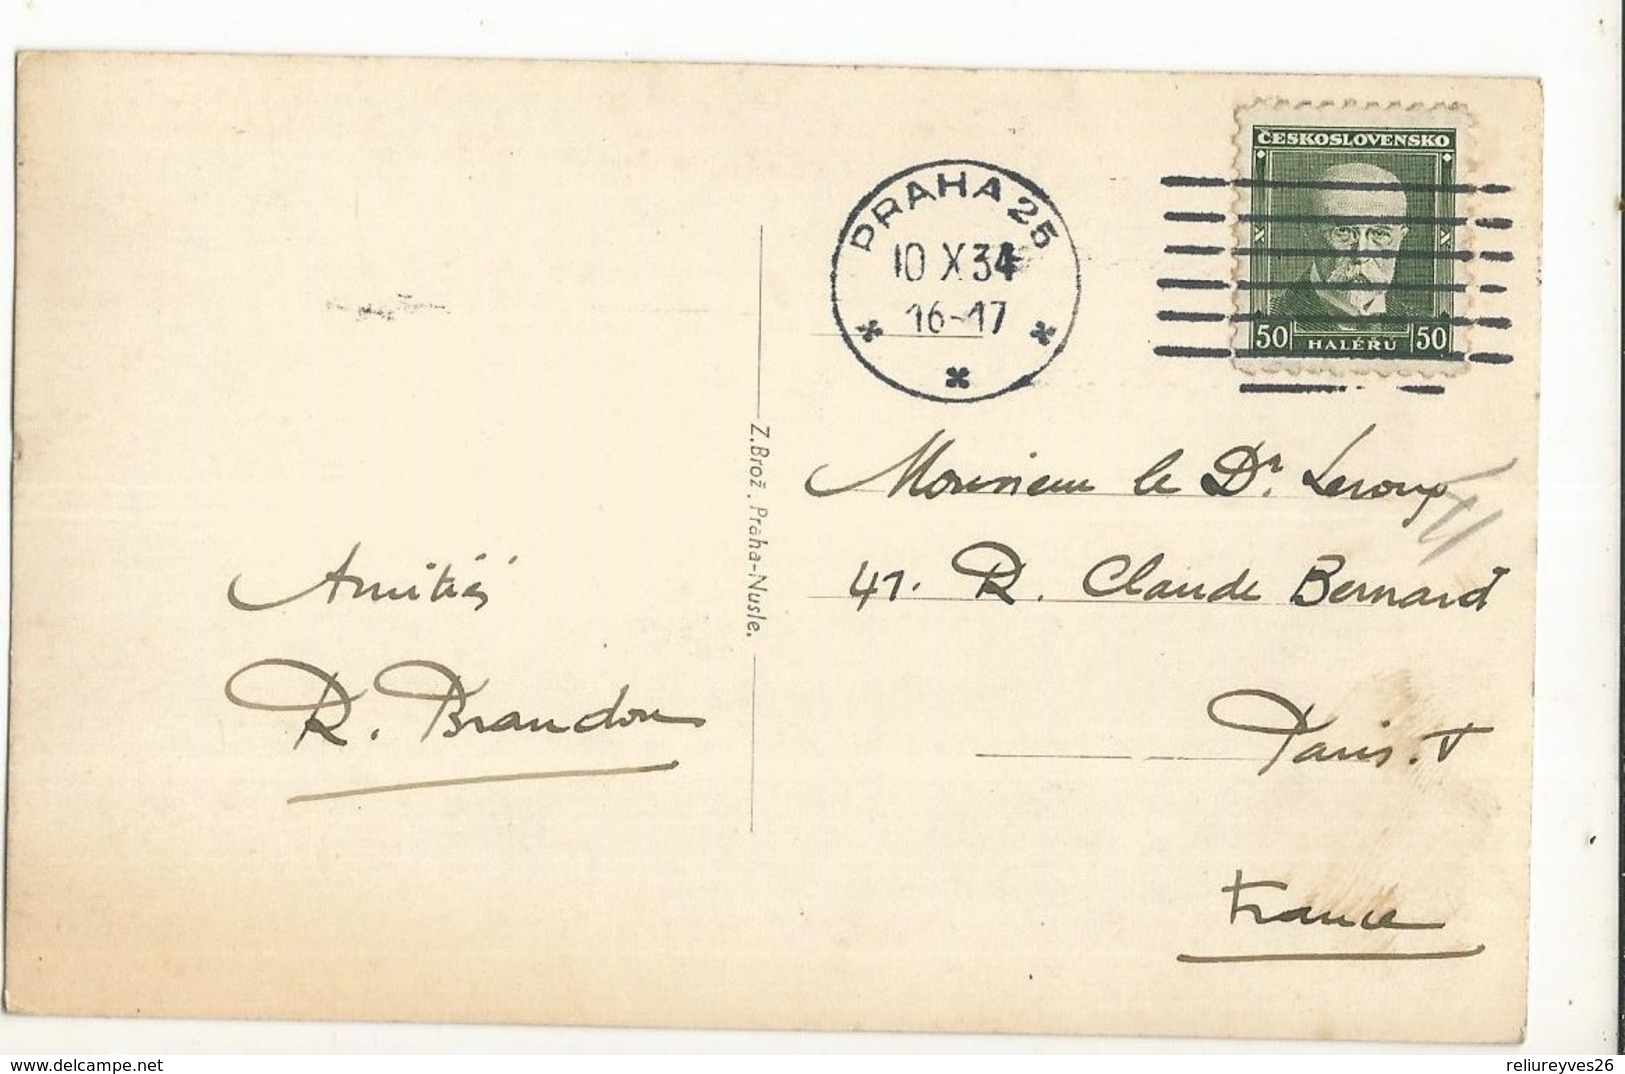 ČESKOSLOVENSKO
50 HALÉŘŮ 50
PRAHA 25
10 X 34
16-17
Z. Brož. Praha-Nusle.
Amitiés
R. Brandon
Monsieur le Dr. Leroux
41. R. Claude Bernard
Paris. V
France
www.delcampe.net
reliureyves26